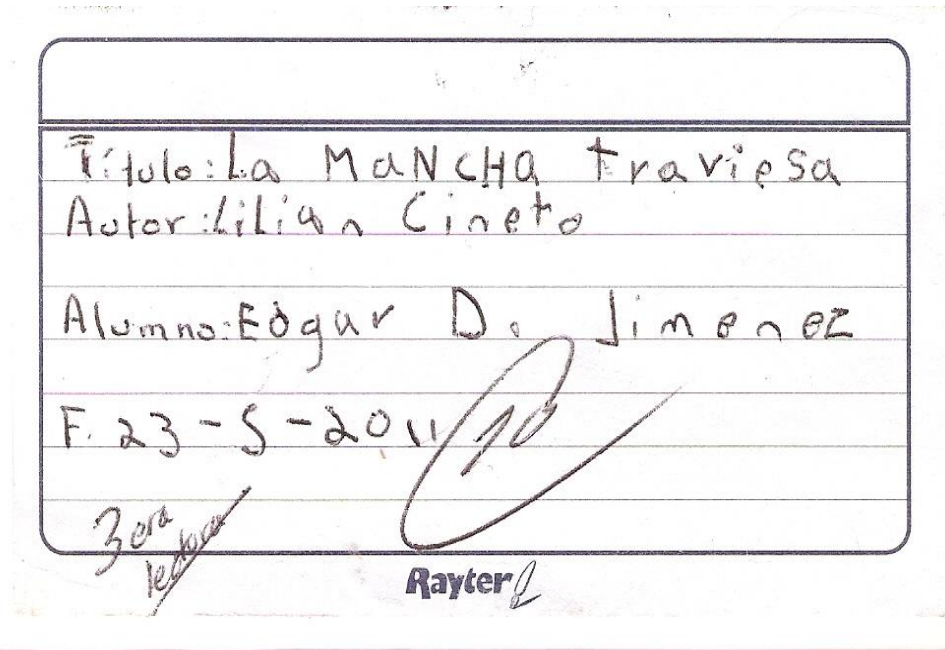 Título: La MaNCHa traviesa
Autor: LiLian Cineto
Alumno: Edgar D. Jimenez
F. 23-5-2011
10
3era
lectura
Rayter